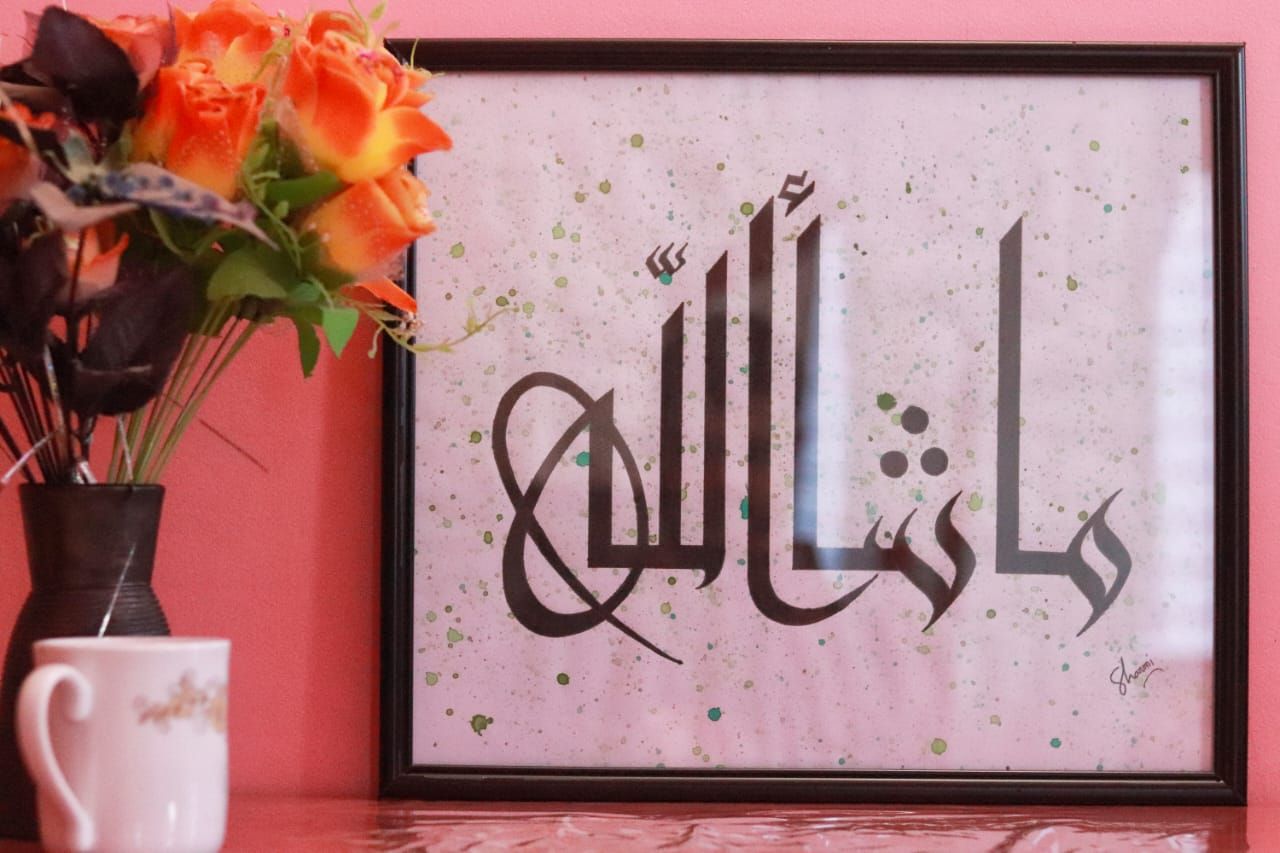 ما شاء الله
Sharmi